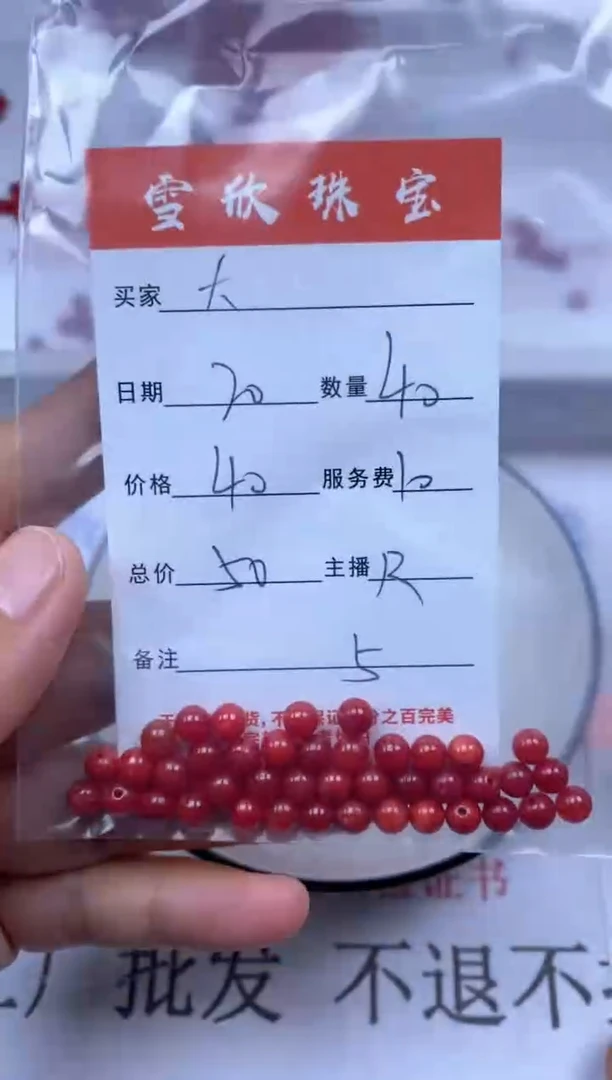 雪欣珠宝
买家 大
日期 20 数量 40
价格 40 服务费 10
总价 50 主播 R
备注 5
货,不 分之百完美
证书
厂批发 不退不